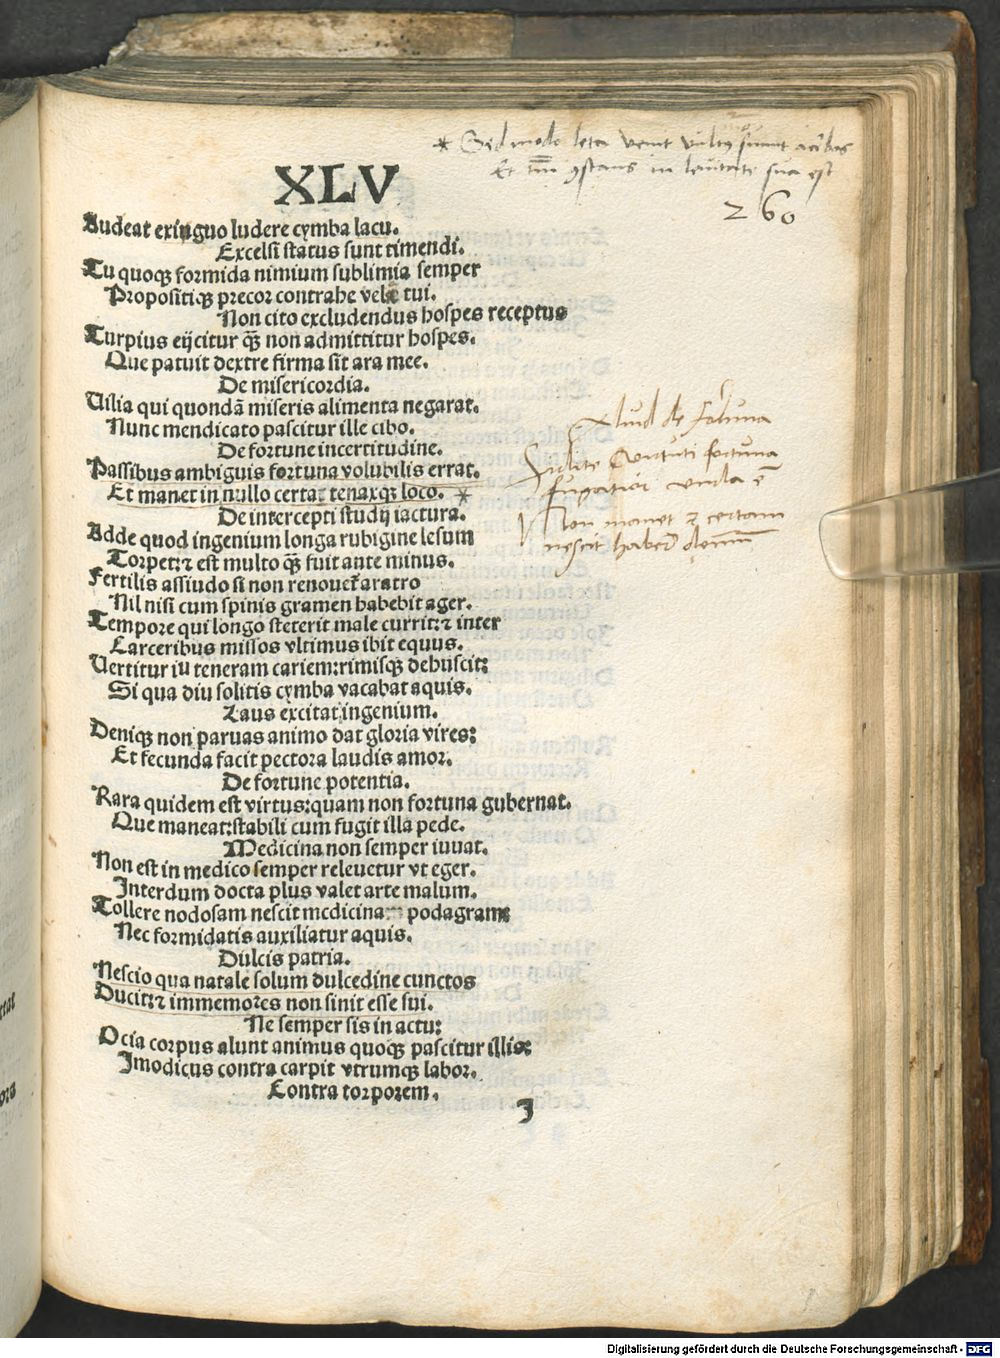 * Sed modo leta venit vultus sumit acerbos
Et tm̄ 9stans in leuitate sua est
260
XLV
Audeat exiguo ludere cymba lacu.
Excelsi status sunt timendi.
Tu quoqꝫ formida nimium sublimia semper
Propositiqꝫ precor contrahe vela tui.
Non cito excludendus hospes receptus
Turpius eijcitur qꝫ̄ non admittitur hospes.
Que patuit dextre firma sit ara mee.
De misericordia.
Uilia qui quondā miseris alimenta negarat.
Nunc mendicato pascitur ille cibo.
De fortune incertitudine.
Passibus ambiguis fortuna volubilis errat.
Et manet in nullo certa: tenaxqꝫ loco. *
De intercepti studij iactura.
Adde quod ingenium longa rubigine lesum
Torpet: ⁊ est multo qꝫ̄ fuit ante minus.
Fertilis assiudo si non renouet̄ aratro
Nil nisi cum spinis gramen habebit ager.
Tempore qui longo steterit male currit: ⁊ inter
Carceribus missos vltimus ibit equus.
Uertitur iu teneram cariem: rimisqꝫ dehiscit:
Si qua diu solitis cymba vacabat aquis.
Laus excitat ingenium.
Deniqꝫ non paruas animo dat gloria vires:
Et fecunda facit pectora laudis amor.
De fortune potentia.
Rara quidem est virtus: quam non fortuna gubernat.
Que maneat: stabili cum fugit illa pede.
Medicina non semper iuuat.
Non est in medico semper releuetur vt eger.
Interdum docta plus valet arte malum.
Tollere nodosam nescit medicina podagram
Nec formidatis auxiliatur aquis.
Dulcis patria.
Nescio qua natale solum dulcedine cunctos
Ducit: ⁊ immemores non sinit esse sui.
Ne semper sis in actu:
Ocia corpus alunt animus quoqꝫ pascitur illis:
Imodicus contra carpit vtrumqꝫ labor.
Contra torporem.
J
Aliud de fortuna
fortuna
fugatior vnda ē
Non manet ⁊ certam
nescit habere domum
Digitalisierung gefördert durch die Deutsche Forschungsgemeinschaft - DFG